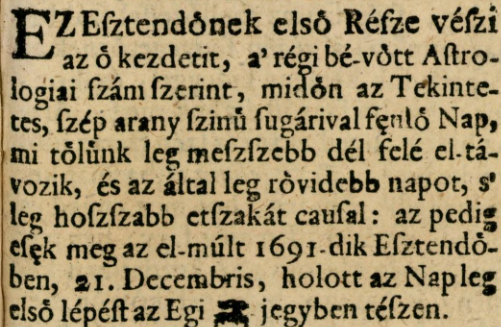 EZ Eſztendőnek elsȯ́ Réſze véſzi
az ȯ́ kezdetit, a' régi bé-vȯ̀tt Aſtro-
logiai ſzám ſzerint, midȯ́n az Tekinte-
tes, ſzép arany ſzinű ſugárival fęnlȯ́ Nap,
mi tȯ́lünk leg meſzſzebb dél felé el-tá-
vozik, és az által leg rȯ̀videbb napot, s'
leg hoſzſzabb etſzakát cauſal: az pedig
eſęk meg az el-múlt 1691-dik Eſztendȯ́-
ben, 21. Decembris, holott az Nap leg
elsȯ́ lépéſt az Egi jegyben tėſzen.